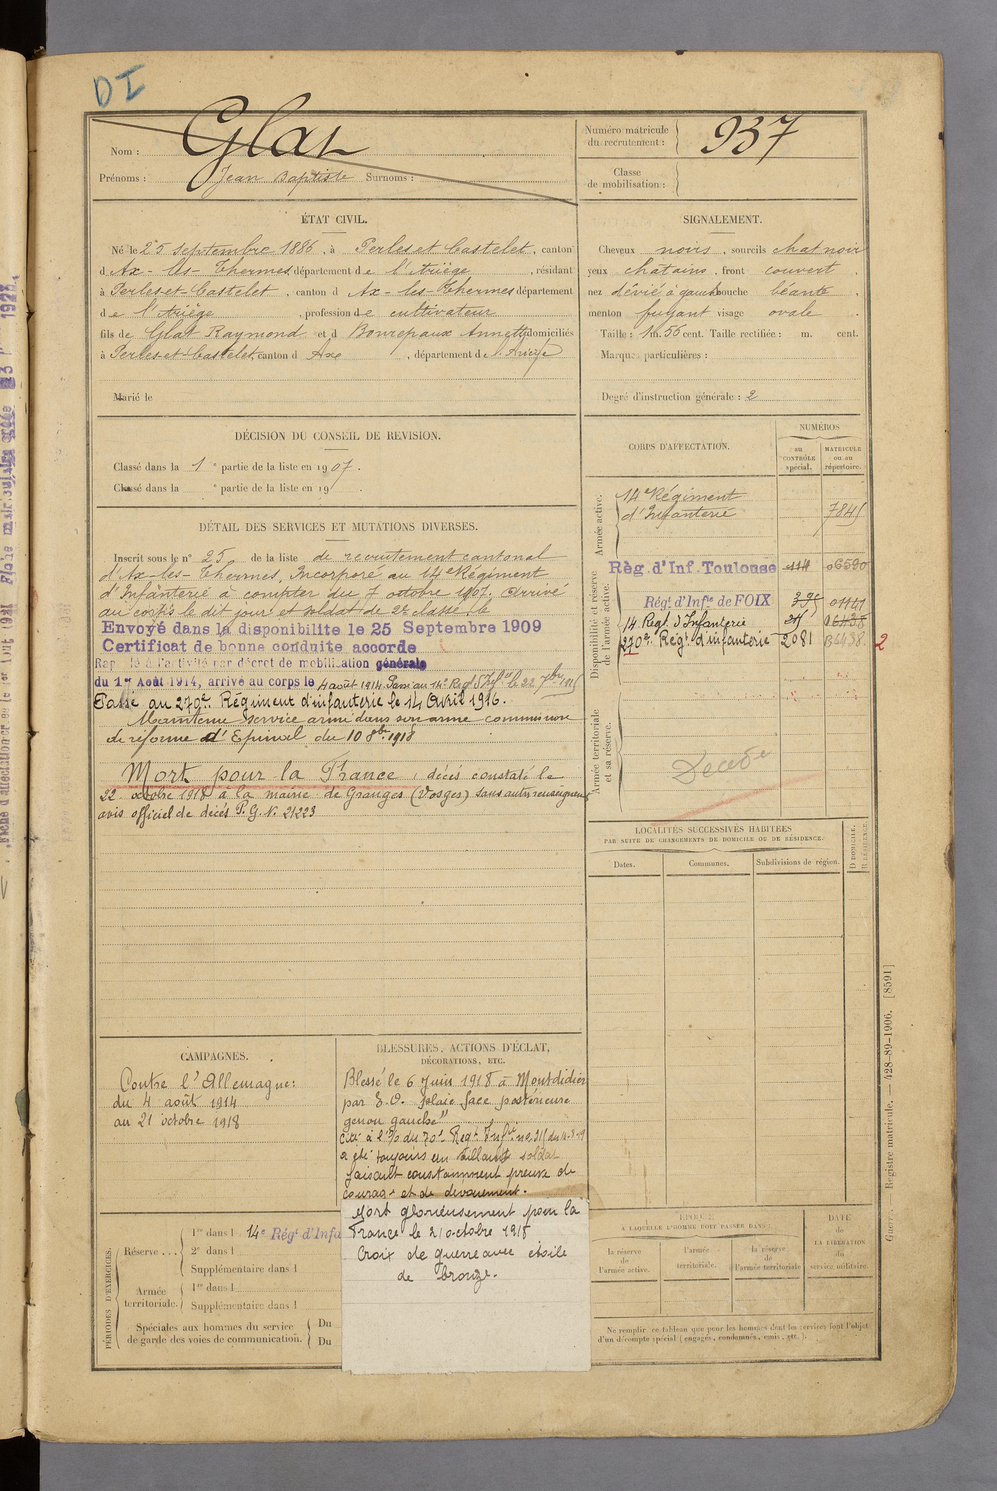 DI
Nom : Glat
Prénoms : Jean Baptiste Surnoms :
Numéro matricule
du recrutement : 937
Classe
de mobilisation :
ÉTAT CIVIL.
Né le 25 septembre 1886, à Perles et Castelet, canton
d'Ax-les-Thermes, département de l'Ariège, résidant
à Perles-et-Castelet, canton d Ax-les-Thermes département
de l'Ariège, profession de cultivateur
fils de Glat Raymond et d Bonrepaux Annette domiciliés
à Perles-et-Castelet canton d Axe, département de l'Ariège
Marié le
SIGNALEMENT.
Cheveux noirs, sourcils chat noir
yeux chatains, front couvert,
nez dévié à gauche bouche béante,
menton fuyant visage ovale
Taille : 1m. 56 cent. Taille rectifiée : m. cent.
Marques particulières :
Degré d'instruction générale : 2
DÉCISION DU CONSEIL DE REVISION.
Classé dans la 1e partie de la liste en 1907.
Classé dans la e partie de la liste en 19 .
DÉTAIL DES SERVICES ET MUTATIONS DIVERSES.
Inscrit sous le n° 25 de la liste de recrutement cantonal
d'Ax-les-Thermes, Incorporé au 14e Régiment
d'Infanterie à compter du 7 octobre 1907. Arrivé
au corps le dit jour et soldat de 2e classe, le
Envoyé dans la disponibilite le 25 Septembre 1909
Certificat de bonne conduite accorde
Rappelé à l'activité par décret de mobilisation générale
du 1er Août 1914, arrivé au corps le 4 août 1914. Passé au 14e Reg d'Infie le 22 7bre 1915
Passé au 270e Régiment d'infanterie le 14 Avril 1916.
Maintenu service armé dans son arme commission
de réforme d'Epinal du 10 8bre 1918
Mort pour la France, décès constaté le
22 octobre 1918 à la mairie de Granges (Vosges) sans autres renseignem
avis officiel de décès P.G. N. 21223
CORPS D'AFFECTATION.
NUMÉROS
au
CONTRÔLE
spécial.
MATRICULE
ou au
répertoire.
Armée active.
14e Régiment
d'Infanterie 7845
Disponibilité et réserve
de l'armée active.
Règ. d'Inf. Toulouse 114 06590
Régt. d'Infie de FOIX 395 01141
14 Regt. d'Infanterie
270e Régt d'infanterie 2081 2
Armée territoriale
et sa réserve.
Décédé
LOCALITÉS SUCCESSIVES HABITÉES
PAR SUITE DE CHANGEMENTS DE DOMICILE OU DE RÉSIDENCE.
Dates.
Communes.
Subdivisions de région.
D DOMICILE.
R RÉSIDENCE.
CAMPAGNES.
Contre l'Allemagne:
du 4 août 1914
au 21 octobre 1918
BLESSURES, ACTIONS D'ÉCLAT,
DÉCORATIONS, ETC.
Blessé le 6 juin 1918 à Montdidier
par E.O. plaie face postérieure
genou gauche"
Cité à l'O/ du 70e Regt Infie
a été toujours un vaillant soldat
faisait constamment preuve de
courage et de dévouement.
Mort glorieusement pour la
France le 21 octobre 1918
Croix de guerre avec étoile
de bronze.
PÉRIODES D'EXERCICES.
Réserve ...
1re dans l 14e Régt d'Infa
2e dans l
Supplémentaire dans l
Armée
territoriale.
1re dans l
Supplémentaire dans l
Spéciales aux hommes du service
de garde des voies de communication.
Du
Du
ÉPOQUE
À LAQUELLE L'HOMME DOIT PASSER DANS :
la réserve
de
l'armée active.
l'armée
territoriale.
la réserve
de
l'armée territoriale
DATE
de
LA LIBÉRATION
du
service militaire.
Ne remplir ce tableau que pour les hommes dont les services font l'objet
d'un décompte spécial (engagés, condamnés, omis, etc.).
Guerre. — Registre matricule. — 428-89-1906. [8591]